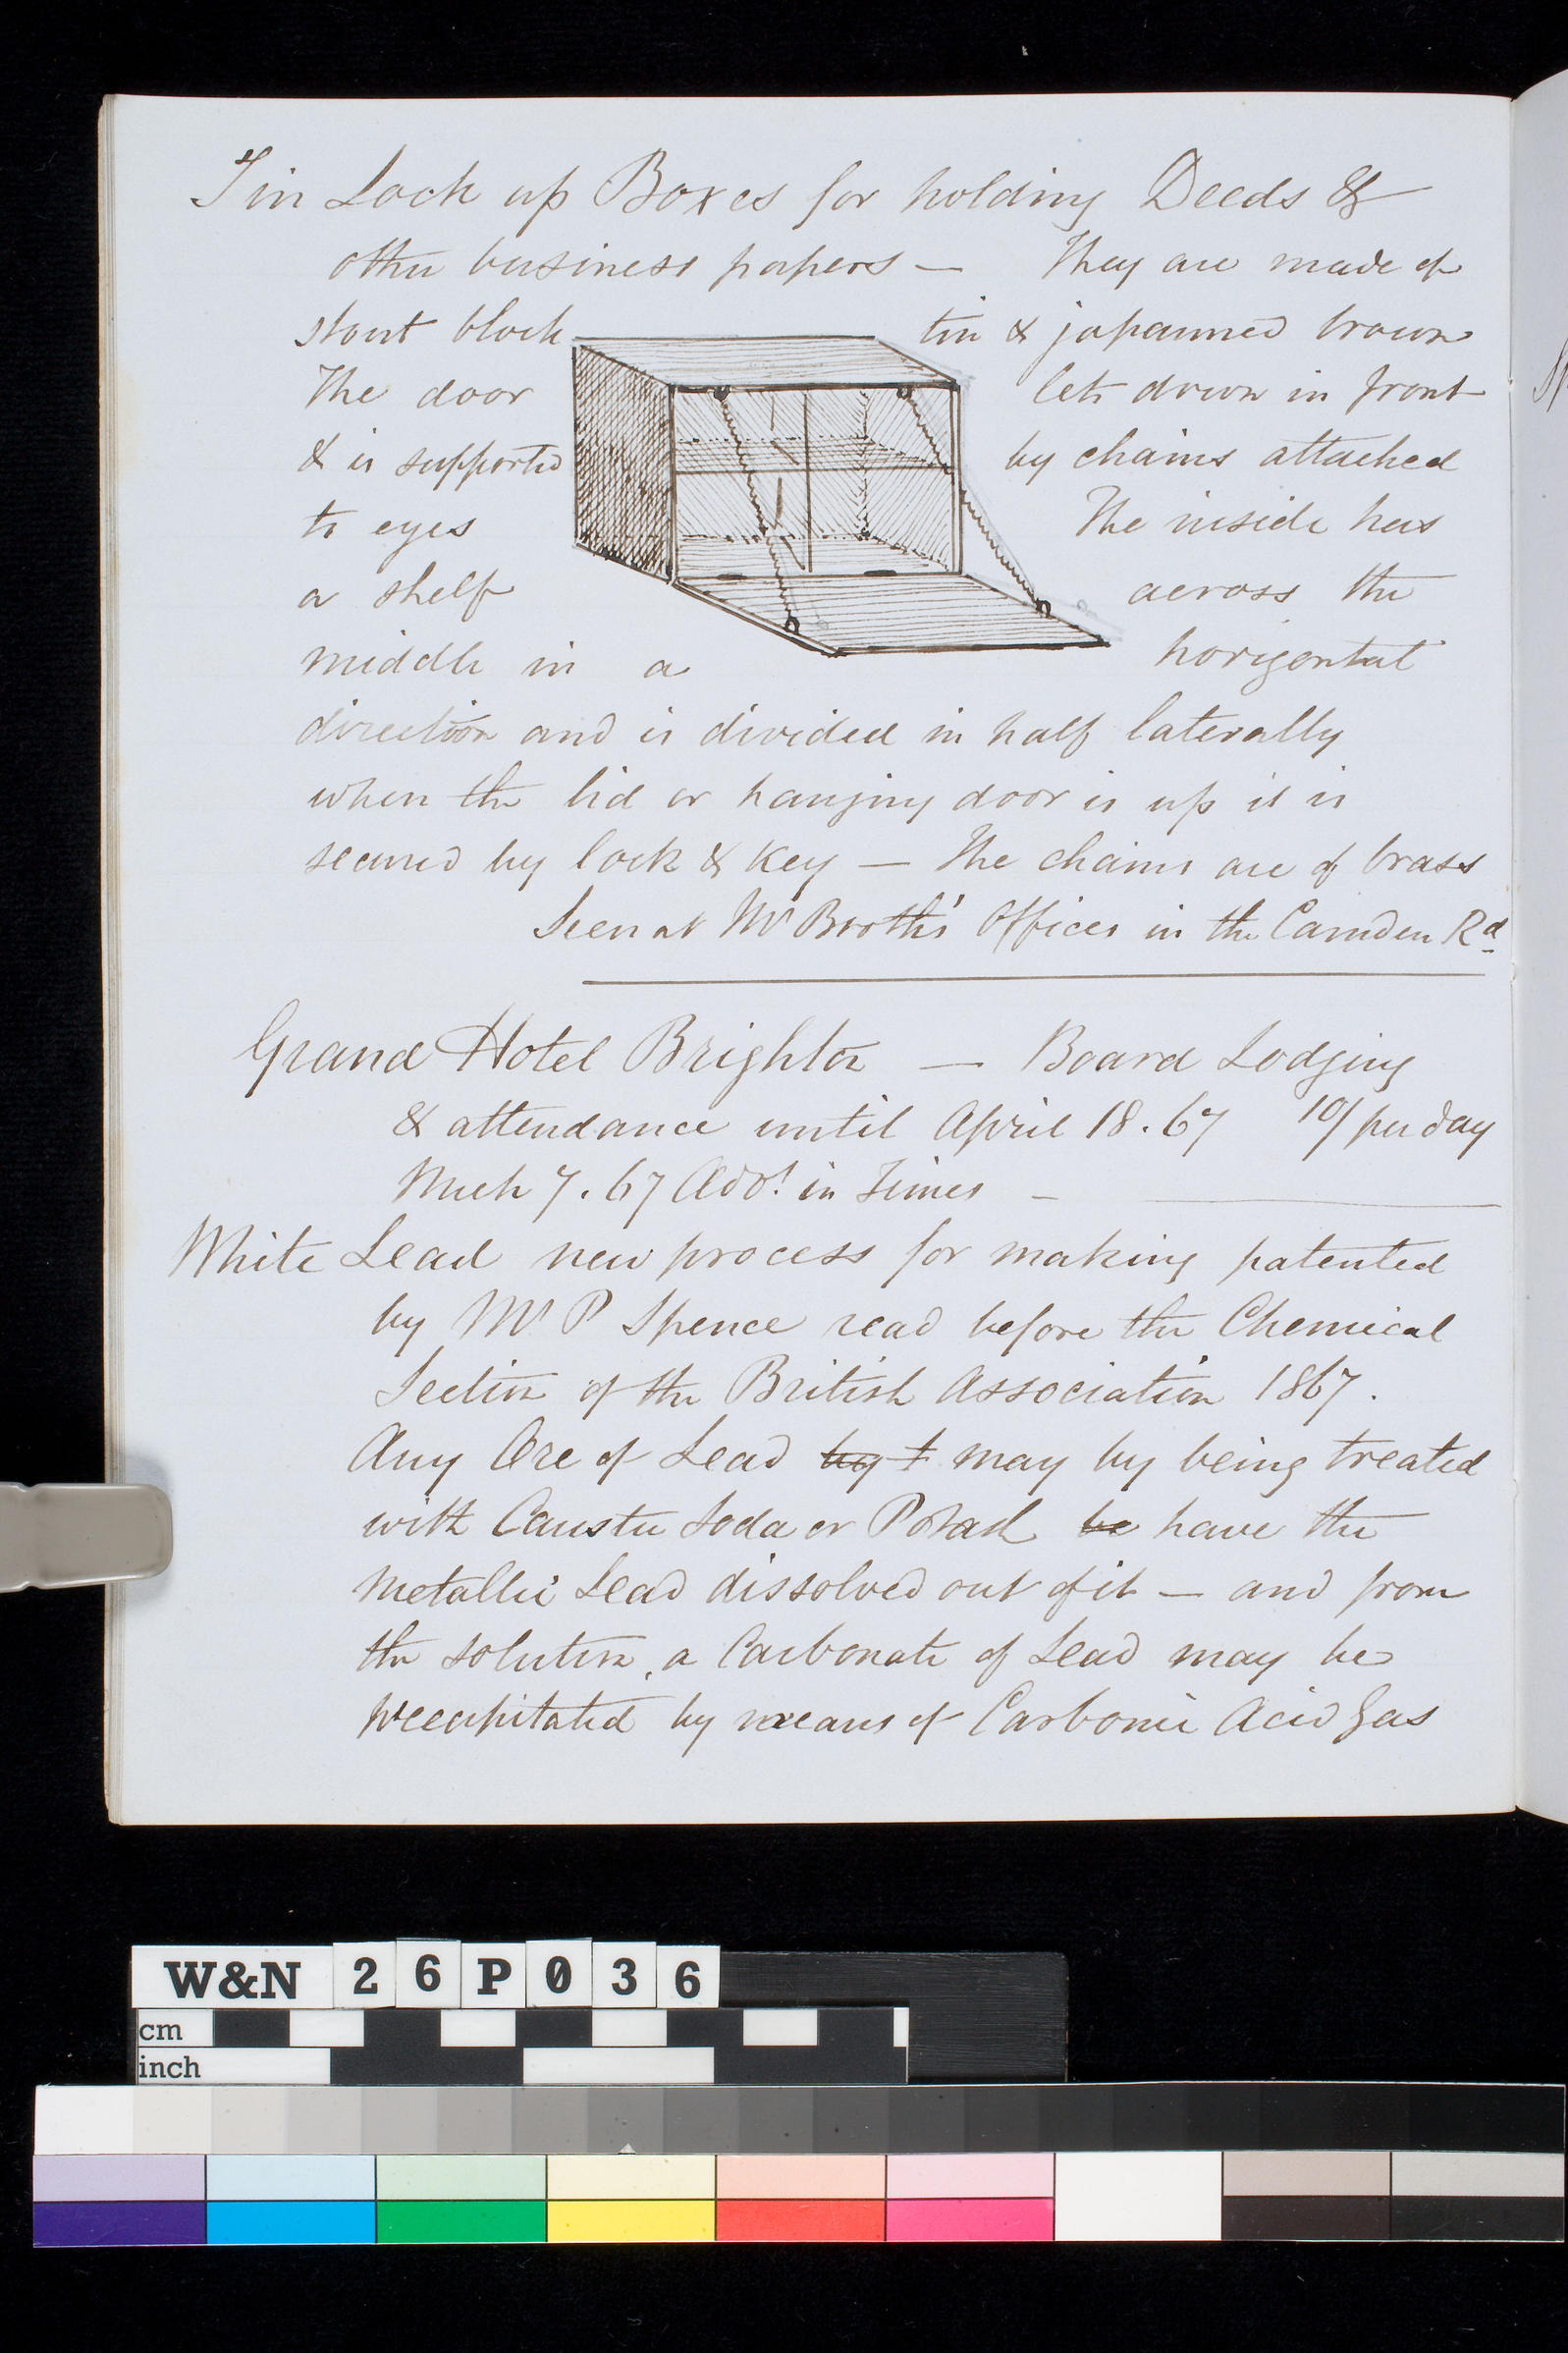 Tin Lock up Boxes for holding Deeds &
other business papers — They are made of
stout block tin & japanned brown
The door lets down in front
& is supported by chains attached
to eyes The inside has
a shelf across the
middle in a horizontal
direction and is divided in half laterally
when the lid or hanging door is up it is
secured by lock & key — The chains are of brass
Seen at Mr Booth's Offices in the Camden Rd
Grand Hotel Brighton — Board Lodging
& attendance until April 18.67 10/ per day
Mch 7.67 Advt. in Times —
White Lead new process for making patented
by Mr P Spence read before the Chemical
Section of the British Association 1867.
Any Ore of Lead by t may by being treated
with Caustic Soda or Potash be have the
metallic Lead dissolved out of it — and from
the solution, a Carbonate of Lead may be
precipitated by means of Carbonic Acid Gas
W&N 26P036
cm
inch